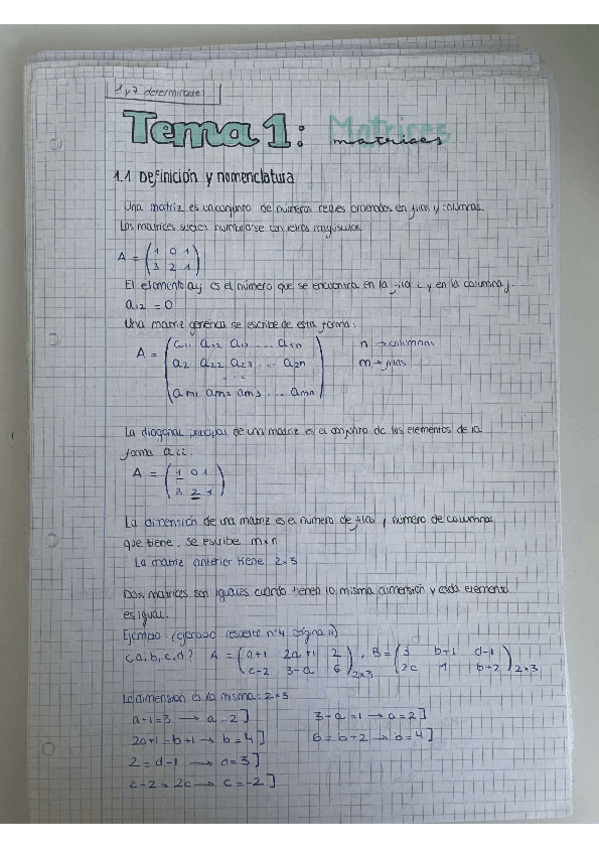 1 y 7 determinante
Tema 1: Matrices
matrices
1.1 Definición y nomenclatura
Una matriz es un conjunto de números reales ordenados en filas y columnas.
Las matrices suelen nombrarse con letras mayúsculas
A = (1 0 1
3 2 1)
El elemento aij es el número que se encuentra en la fila i y en la columna j.
a12 = 0
Una matriz genérica se escribe de esta forma:
A = (a11 a12 a13 ... a1n    n → columnas
a2 a22 a23 ... a2n    m → filas
...
am1 am2 am3 ... amn)
La diagonal principal de una matriz es el conjunto de los elementos de la
forma aii.
A = (1 0 1
3 2 1)
La dimensión de una matriz es el número de filas y número de columnas
que tiene, se escribe m×n
La matriz anterior tiene 2×3
Dos matrices son iguales cuando tienen la misma dimensión y cada elemento
es igual.
Ejemplo: (ejercicio resuelto nº4 página 11)
¿a,b,c,d? A = (a+1 2a+1 2
c-2 3-a 6)2×3, B = (3 b+1 d-1
2c 1 b+2)2×3
La dimensión es la misma: 2×3
a+1=3 → a=2]    3-a=1 → a=2]
2a+1=b+1 → b=4]    6=b+2 → b=4]
2=d-1 → d=3]
c-2=2c → c=-2]